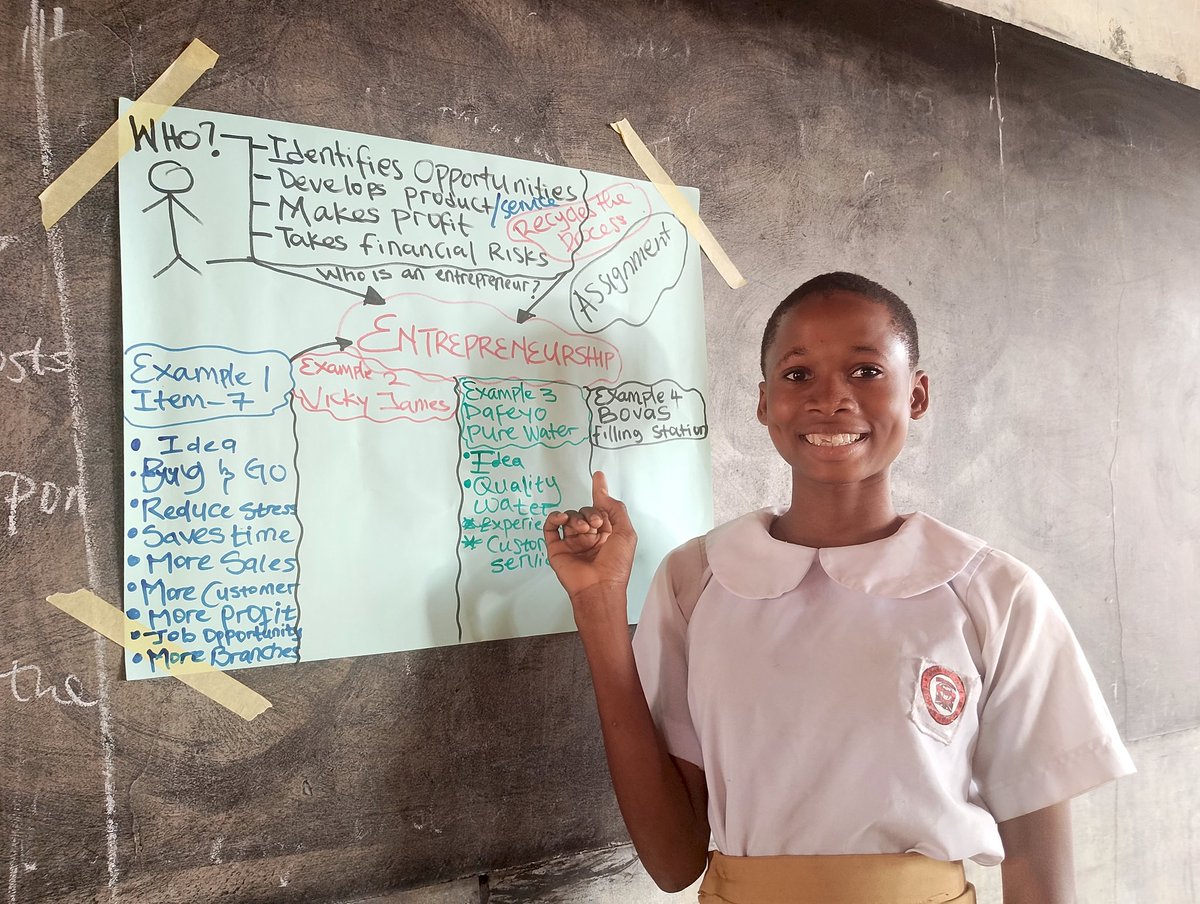 WHO?
- Identifies Opportunities
- Develops product/service
- Makes profit
- Takes financial Risks
Who is an entrepreneur?
Recycles the
Process
Assignment
ENTREPRENEURSHIP
Example 1
Item-7
• Idea
• Bug & GO
• Reduce stress
• Saves time
• More Sales
• More Customer
• More profit
• Job Opportunity
• More Branches
Example 2
Vicky James
Example 3
Dafeyo
Pure Water
• Idea
• Quality
Water
* Experie
* Custom
servic
Example 4
Bovas
filling Station
osts
Pon
the